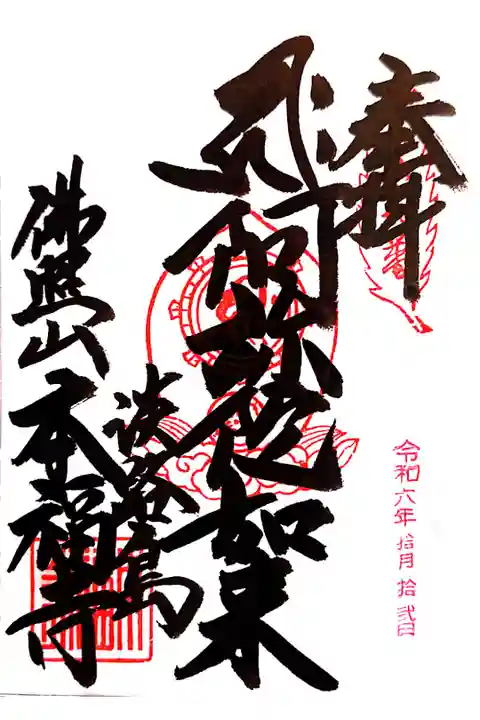 奉拝
飛阿弥陀如来
淡路島
佛照山 本福寺
令和六年 拾月 拾弐日